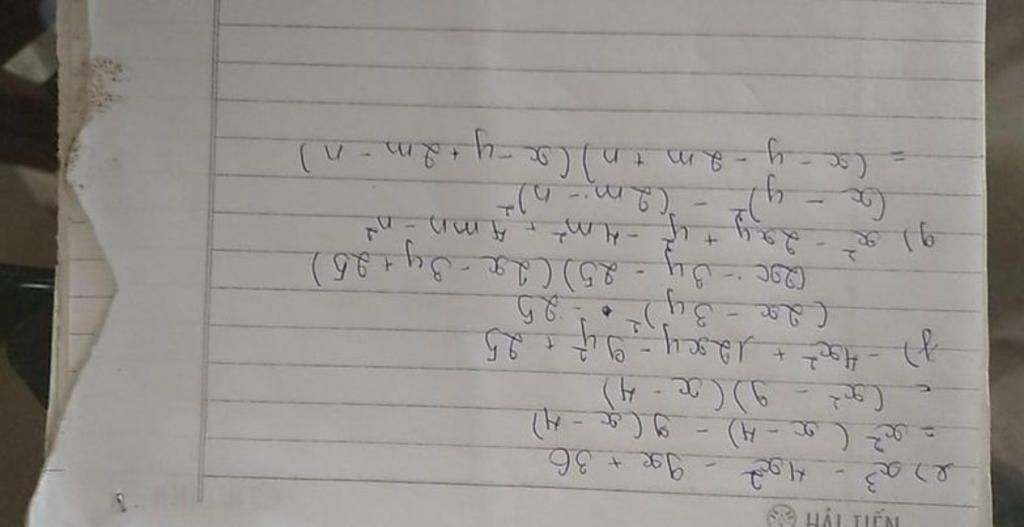 HẢI TIẾN
e) x³ - 4x² - 9x + 36
= x² (x - 4) - 9(x - 4)
= (x² - 9)(x - 4)
f) - 4x² + 12xy - 9y² + 25
(2x - 3y)² - 25
(2x - 3y - 25)(2x - 3y + 25)
g) x² - 2xy + y² - 4m² + 4mn - n²
(x - y)² - (2m - n)²
= (x - y - 2m + n)(x - y + 2m - n)